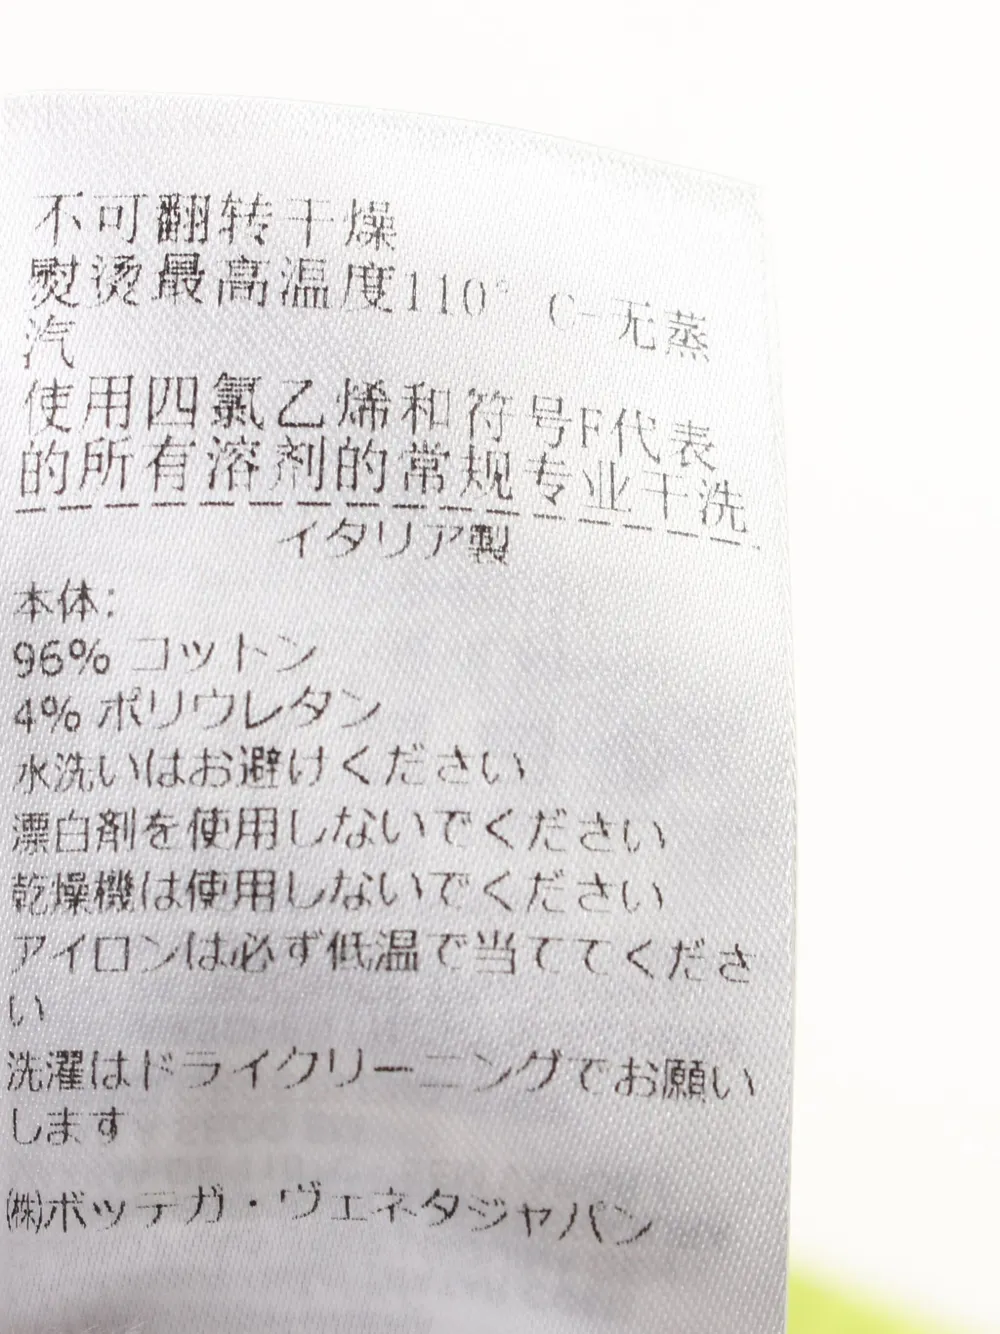 不可翻转干燥
熨烫最高温度110° C-无蒸
汽
使用四氯乙烯和符号F代表
的所有溶剂的常规专业干洗
イタリア製
本体:
96% コットン
4% ポリウレタン
水洗いはお避けください
漂白剤を使用しないでください
乾燥機は使用しないでください
アイロンは必ず低温で当ててくださ
い
洗濯はドライクリーニングでお願い
します
㈱ボッテガ・ヴェネタジャパン